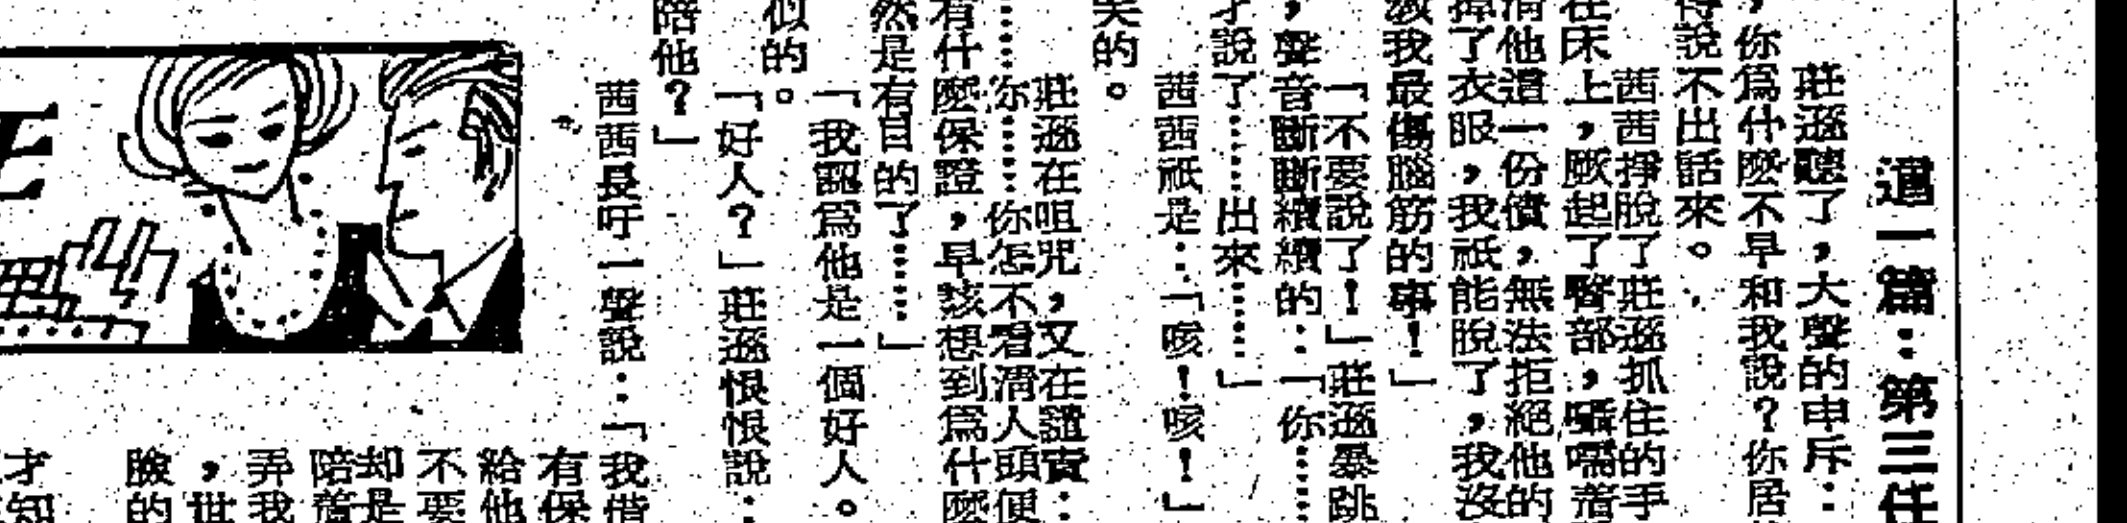 這一篇：第三任
莊遜聽了，大聲的申斥：
，你爲什麼不早和我說？你居
得說不出話來。
茜茜掙脫了莊遜抓住的手
在床上，厥起了臀部，囁嚅着
清他這一份債，無法拒絕他的
掉了衣服，我祇能脫了，我沒
我最傷腦筋的事！」
「不要說了！」莊遜暴跳
，聲音斷斷續續的：「你……
才說了……出來……」
茜茜祇是：「咳！咳！」
笑的。
莊遜在咀咒，又在證實：
……你……你怎不看清人頭便
有什麼保證，早該想到爲什麼
然是有目的了……」
「我認爲他是一個好人。
似的。
「好人？」莊遜恨恨說：
陪他？」
茜茜長吁一聲說：「我借
有保
給他
不要
却是
陪着
弄我
，世
臉的
才知